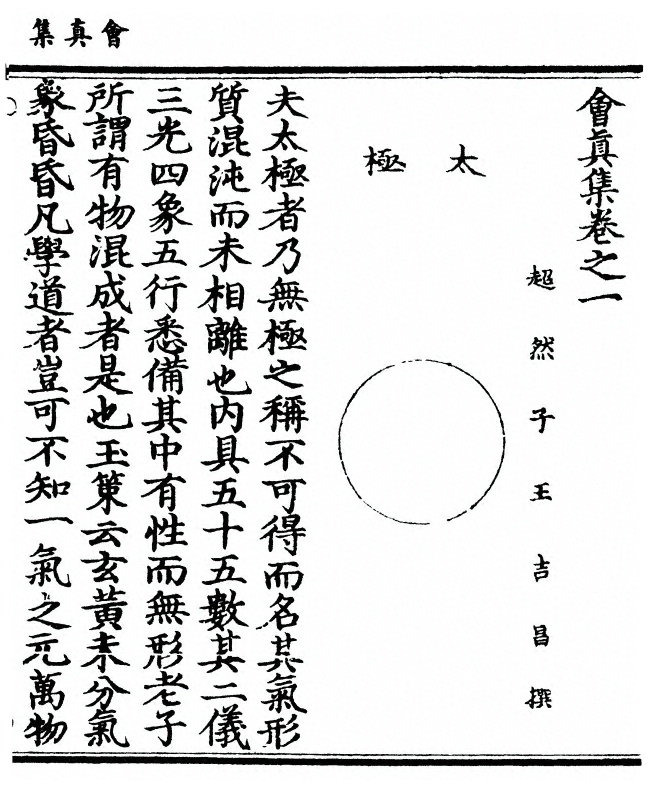 會真集
會真集卷之一
超然子王吉昌撰
太極
夫太極者乃無極之稱不可得而名其氣形
質混沌而未相離也内具五十五數其二儀
三光四象五行悉備其中有性而無形老子
所謂有物混成者是也玉策云玄黄未分氣
象昏昏凡學道者豈可不知一氣之元萬物